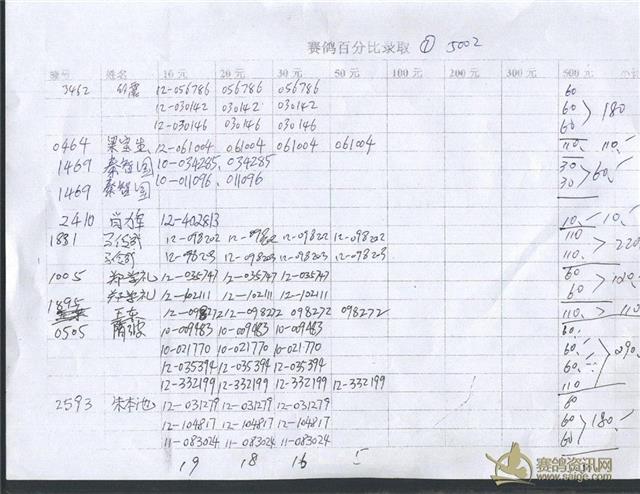 赛鸽百分比录取 ① 5002
编号 姓名 10元 20元 30元 50元 100元 200元 300元 500元 小计
3462 12-056786 056786 056786 60
12-030142 030142 030142 60 180
12-030146 030146 030146 60
0464 12-061004 061004 061004 061004 110 110
1469 秦智国 10-034285 034285 30 60
1469 秦智国 10-011096 011096 30
2410 肖军 12-402813 10 10
1881 12-098202 12-098202 12-098202 12-098202 110 220
12-098203 12-098203 12-098203 12-098203 110
1005 郑学礼 12-035747 12-035747 12-035747 60 120
郑学礼 12-102111 12-102111 12-102111 60
1895 王东 12-098272 12-098272 098272 098272 110 110
0505 10-009483 10-009483 10-009483 60
10-021770 10-021770 10-021770 60 290
12-035394 12-035394 12-035394 60
12-332199 12-332199 12-332199 12-332199 110
2593 朱本池 12-031279 12-031279 12-031279 60
12-104817 12-104817 12-104817 60 180
11-083024 11-083024 11-083024 60
19 18 16 5
赛鸽资讯网
www.saige.com